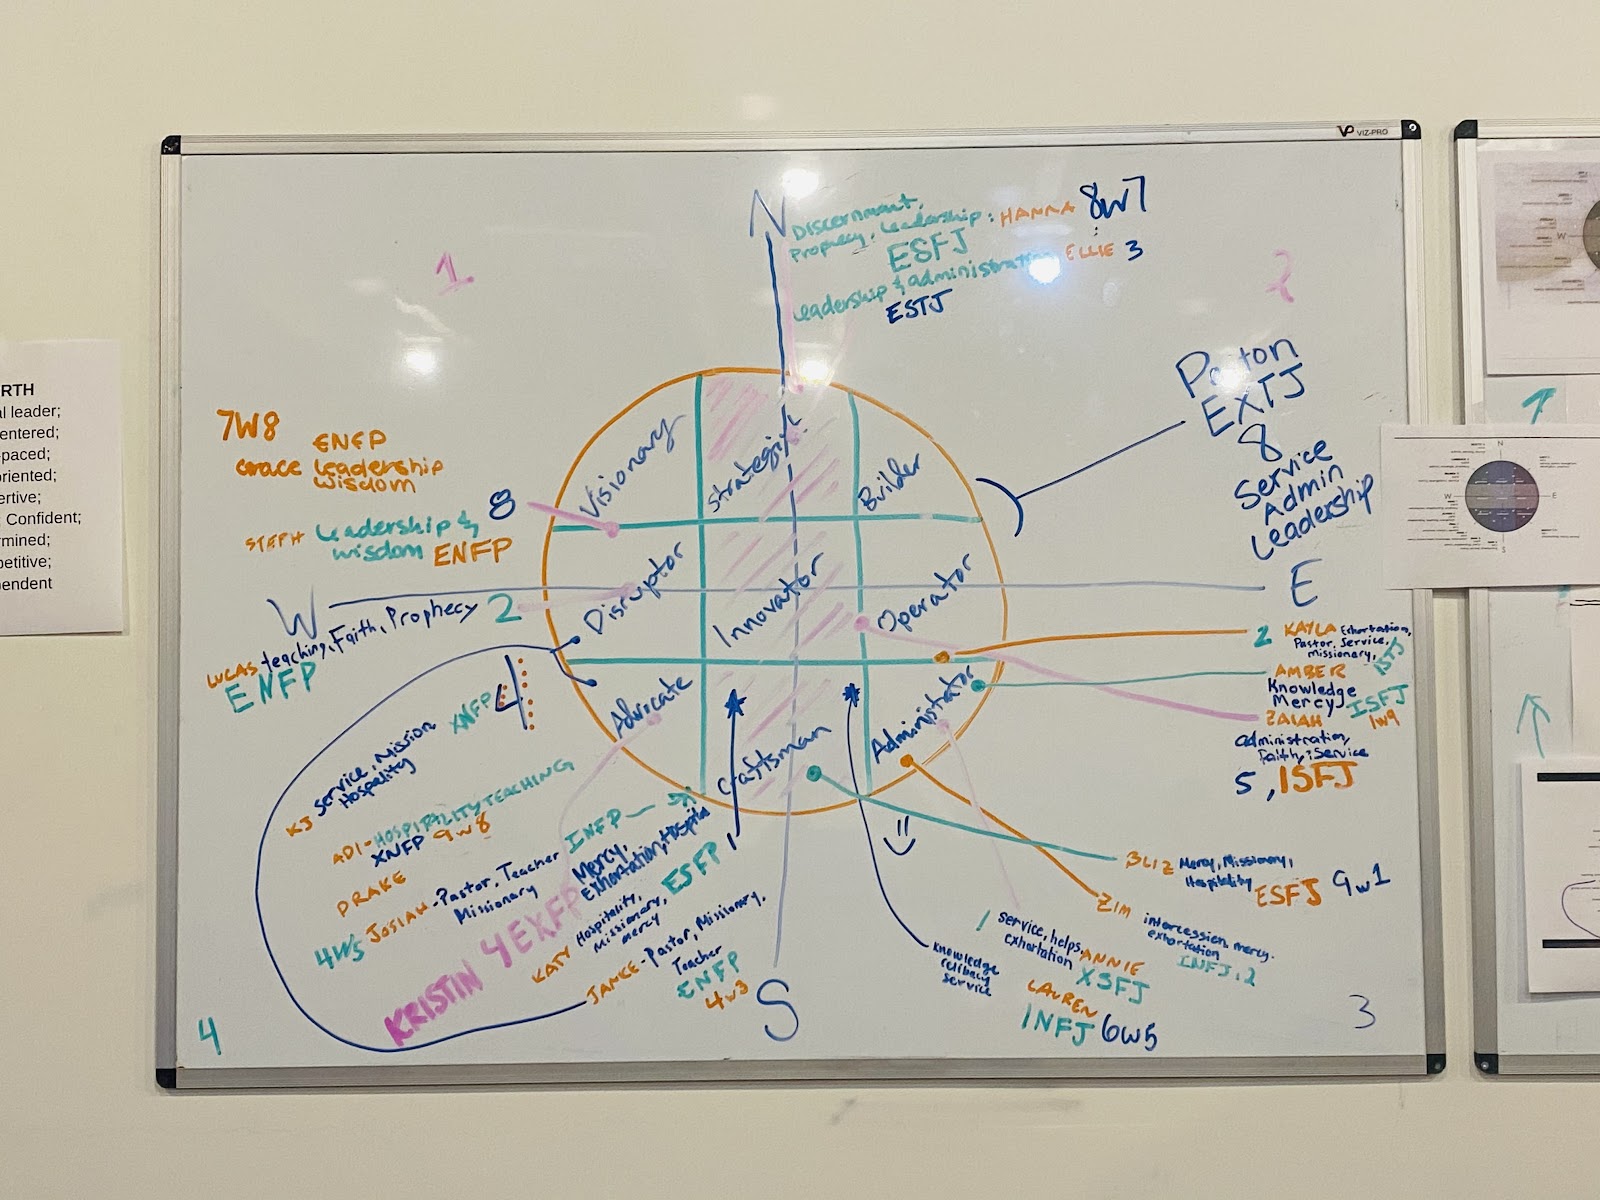 VP VIZ-PRO
RTH
al leader;
entered;
-paced;
oriented;
ertive;
Confident;
rmined;
petitive;
pendent
1
2
N
Discernmant,
Prophecy, Leadership: HANNA 8w7
ESFJ
Leadership & administration ELLIE 3
ESTJ
EXTJ
8
Service
Admin
Leadership
7W8
ENFP
Grace Leadership
Wisdom
STEPH Leadership & 8
wisdom ENFP
W
E
LUCAS teaching, Faith, Prophecy 2
ENFP
Visionary
Strategist
Builder
Disruptor
Innovator
Operator
Advocate
Craftsman
Administrator
2 KAYLA Exhortation,
Pastor, Service,
missionary,
ISTJ
AMBER
Knowledge
Mercy,
ISFJ
1w9
ZAIAH
administration,
Faith, Service
5, ISFJ
KJ Service, Mission XNFP 4
Hospality
ADI-HOSPITALITY TEACHING
XNFP 9w8
DRAKE
INFP
4W5 JOSIAH-Pastor, Teacher
Missionary
Mercy,
Exhortation,
KRISTIN 4 EXFP
KATY Hospitality, ESFP
missionary,
mercy
JANKE-Pastor, Missionary,
Teacher
ENFP
4w3
S
BLIZ Mercy, Missionary,
Hospitality ESFJ 9w1
ZIM intercession, mercy,
exhortation
INFJ, 2
1 service, helps, ANNIE
exhortation XSFJ
Knowledge
celibacy
service
LAUREN
INFJ 6w5
4
3
N
W
E
S
W